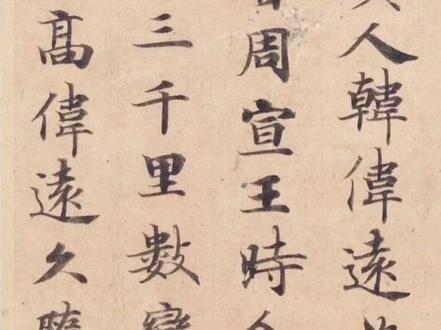 人韓偉遠
周宣王時
三千里數
髙偉遠久